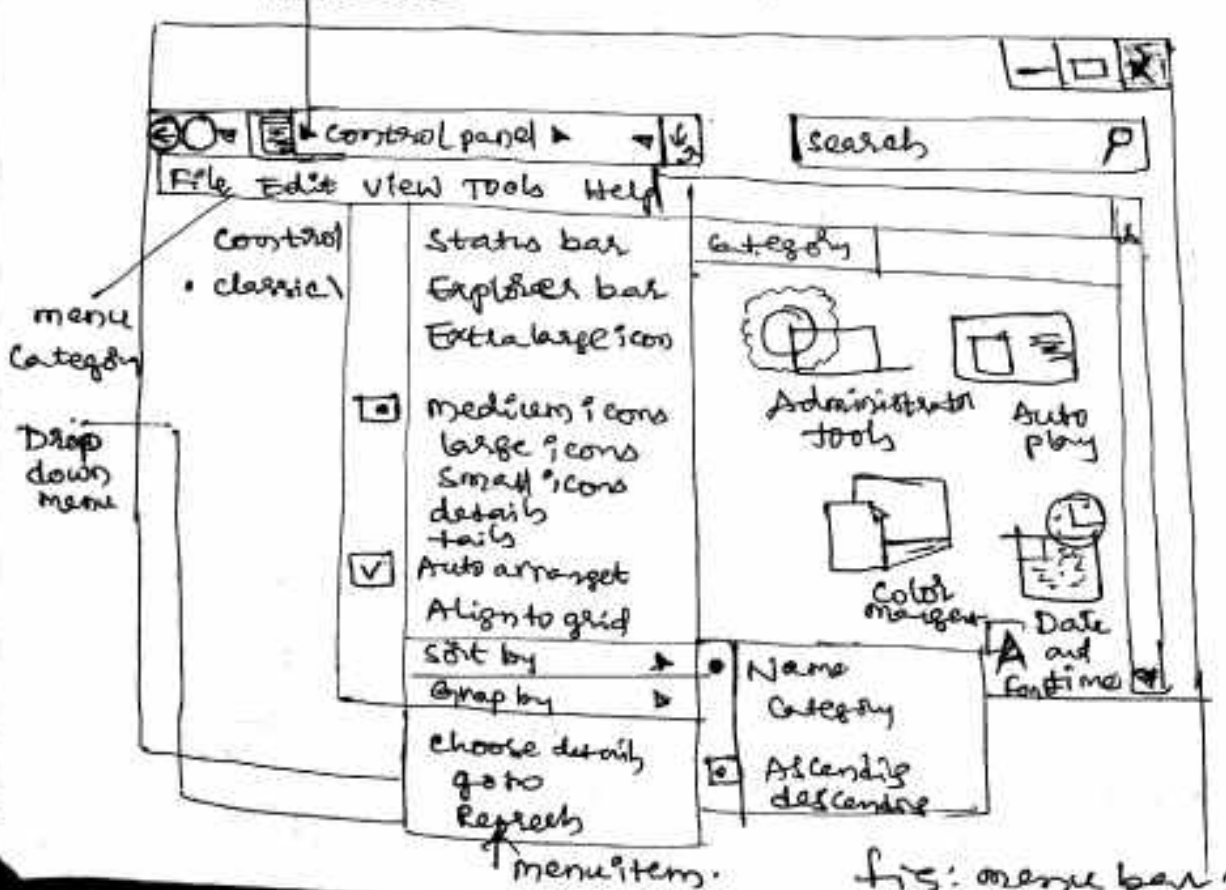 Control panel
search
File Edit View Tools Help
Control
• classical
menu
Category
Drop
down
menu
Status bar
Explorer bar
Extra large icon
medium icons
large icons
small icons
details
tails
Auto arranget
Align to grid
Sort by
Group by
choose details
go to
Refresh
Category
Administrator
tools
Auto
play
Color
Date
and
time
Font
A
Name
Category
Ascending
descending
menu item.
fig: menu bar.